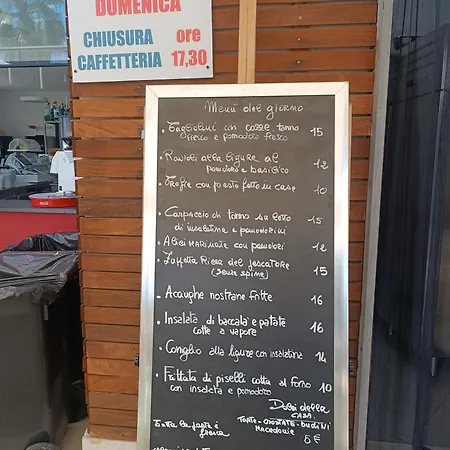 DOMENICA
CHIUSURA ore
CAFFETTERIA 17,30
Menù del giorno
• Tagliolini con cozze tonno 15
fresco e pomodoro fresco
• Ravioli alla ligure al 12
pomodoro e basilico
• Trofie con pesto fatto in casa 10
• Carpaccio di tonno su letto 15
di insalatina e pomodorini
• Alici marinate con pomodori 12
• Zuppetta Ricca del pescatore 15
(senze spine)
• Acciughe nostrane fritte 16
• Insalata di baccalà e patate 16
cotte a vapore
• Coniglio alla ligure con insalatina 14
• Frittata di piselli cotta al forno 10
con insalata e pomodoro
Dolci della
CASA
Tutta la pasta è
fresca
TORTE - CROSTATE - BUDINI
MACEDONIE 5€